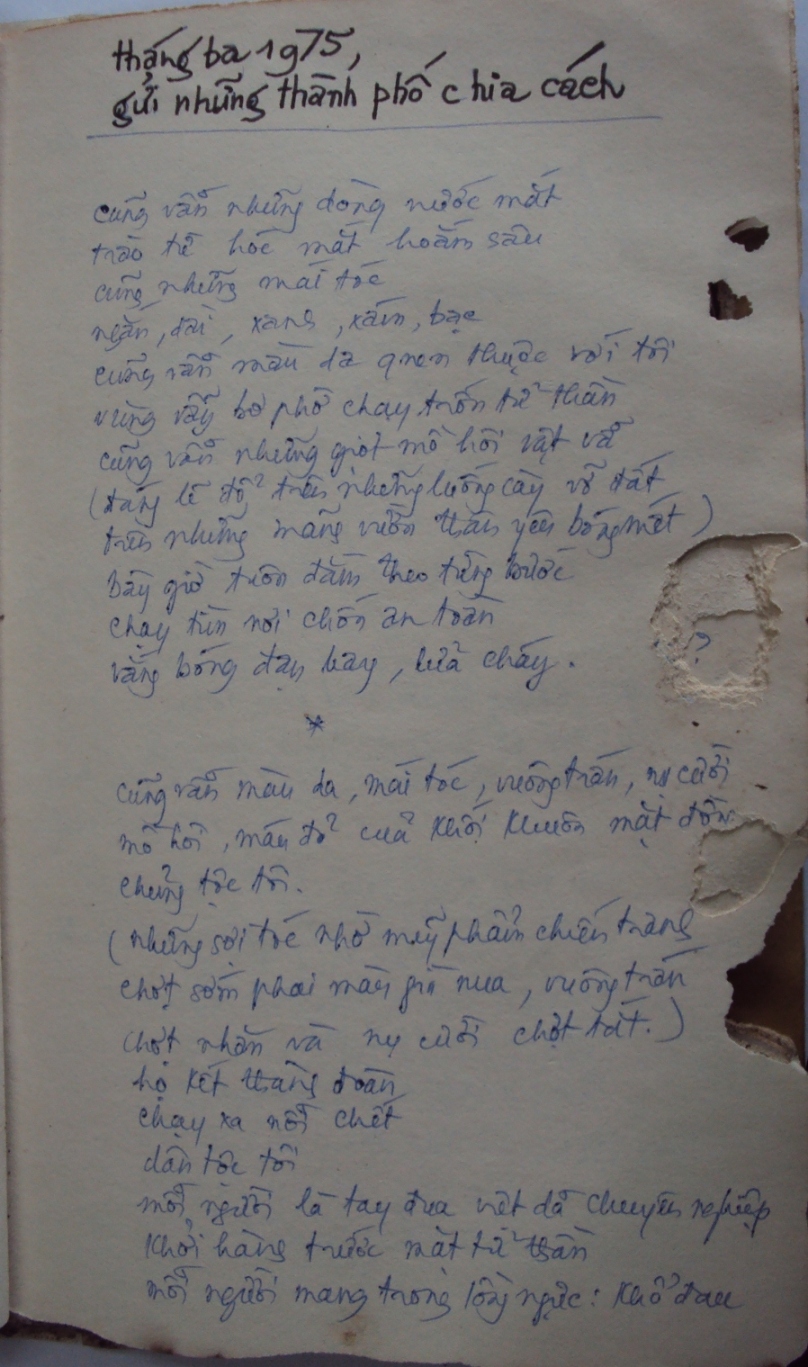 tháng ba 1975,
gửi những thành phố chia cách
cũng vẫn những dòng nước mắt
trào từ hốc mắt hoắm sâu
cũng những mái tóc
ngắn, dài, xanh, xám, bạc
cũng vẫn màu da quen thuộc với tôi
vùng vẫy bơ phờ chạy trốn tử thần
cũng vẫn những giọt mồ hôi vật vã
(đáng lẽ đổ trên những luống cày vỡ đất
trên những mảng vườn thân yêu bóng mát)
bây giờ tuôn đầm theo từng bước
chạy tìm nơi chốn an toàn
vắng bóng đạn bay, lửa cháy.
?
*
cũng vẫn màu da, mái tóc, vuông trán, nụ cười
mồ hôi, máu đỏ của khối khuôn mặt đồng
chủng tộc tôi.
(những sợi tóc nhờ mỹ phẩm chiến tranh
chợt sớm phai màu già nua, vuông trán
chợt nhăn và nụ cười chợt tắt.)
họ kết thành đoàn
chạy xa nỗi chết
dân tộc tôi
mỗi người là tay đua việt dã chuyên nghiệp
khởi hành trước mặt tử thần
mỗi người mang trong lồng ngực: khổ đau